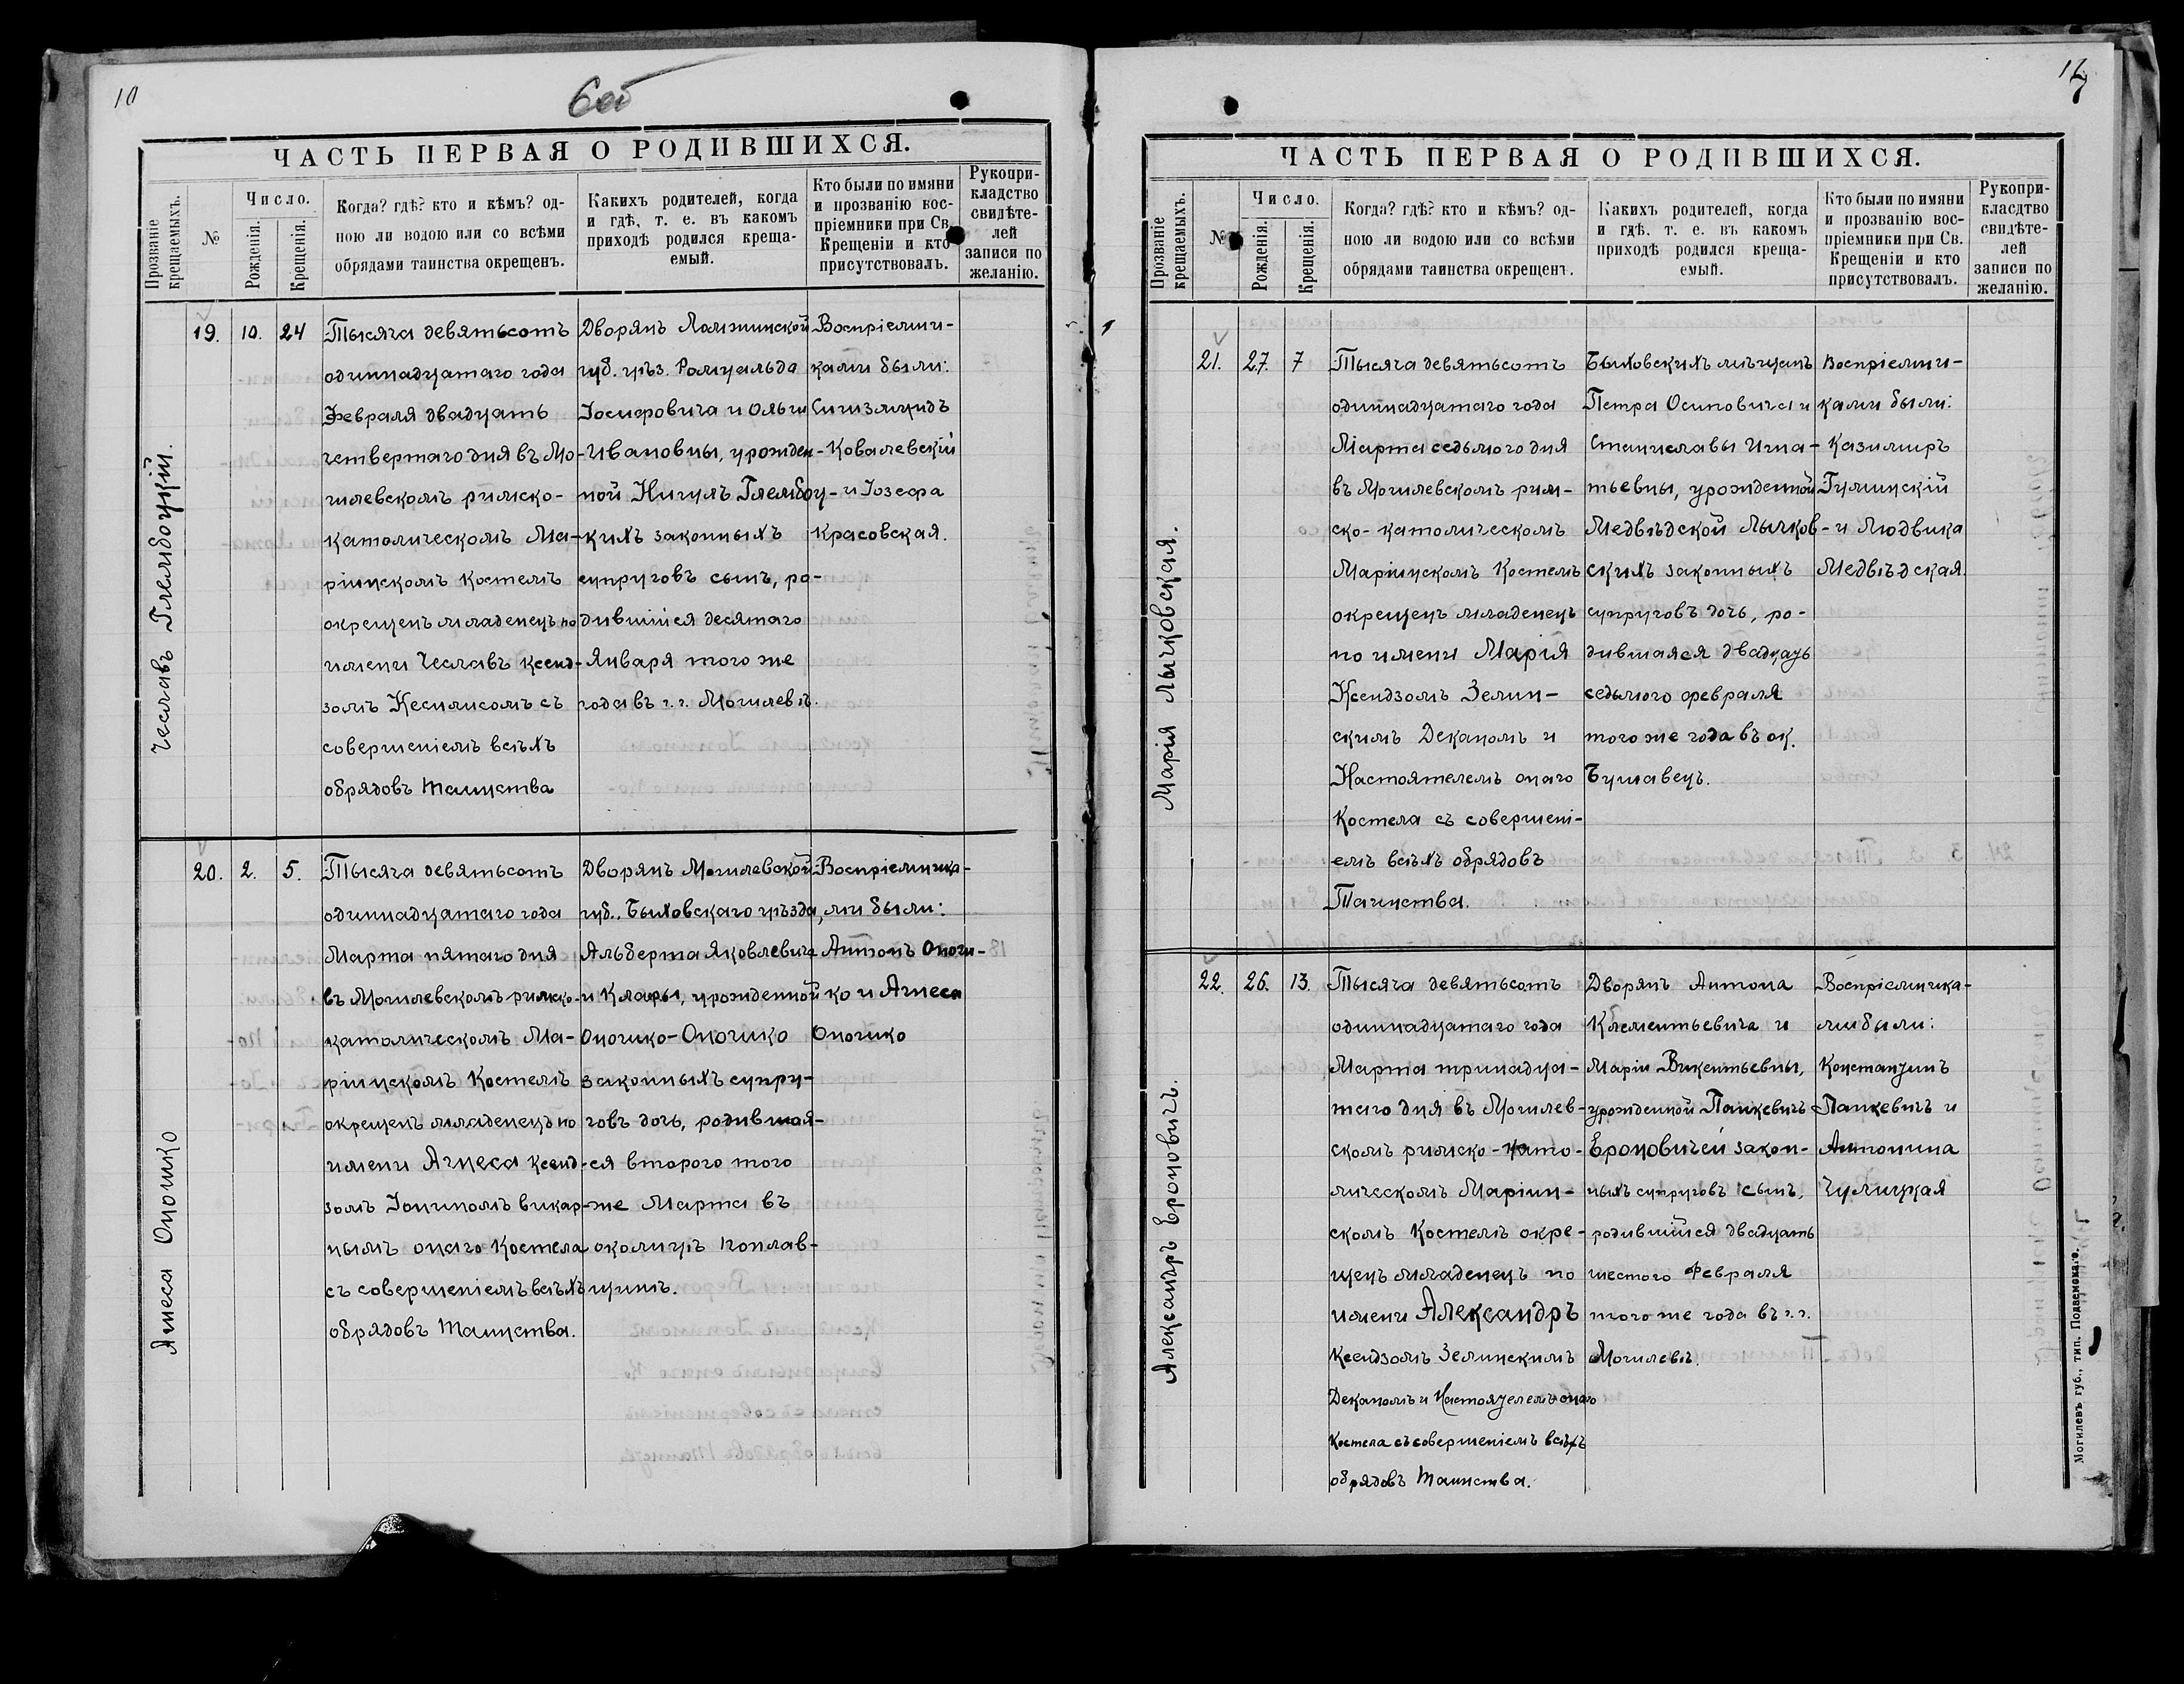 10
6об
ЧАСТЬ ПЕРВАЯ О РОДИВШИХСЯ.
Прозваніе крещаемыхъ.
№
Число.
Рожденія.
Крещенія.
Когда? гдѣ? кто и кѣмъ? од-
ною ли водою или со всѣми
обрядами таинства окрещенъ.
Какихъ родителей, когда
и гдѣ, т. е. въ какомъ
приходѣ родился креща-
емый.
Кто были по имяни
и прозванію вос-
пріемники при Св.
Крещеніи и кто
присутствовалъ.
Рукопри-
кладство
свидѣте-
лей
записи по
желанію.
Чеславъ Глембоцкій.
19.
10.
24
Тысяча девятьсотъ
одиннадцатаго года
Февраля двадцать
четвертаго дня въ Мо-
гилевскомъ римско-
католическомъ Ма-
ріинскомъ Костелѣ
окрещенъ младенецъ по
имени Чеславъ Ксенд-
зомъ
съ
совершеніемъ всѣхъ
обрядовъ Таинства
Дворянъ Ломжинской
губ. уѣз. Ромуальда
Іосифовича и Ольги
Ивановны, урожден-
ной
Глембоц-
кихъ законныхъ
супруговъ сынъ, ро-
дившійся десятаго
Января того же
года въ г. г. Могилевѣ.
Воспріемни-
ками были:
Сигизмундъ
Ковалевскій
и Іозефа
Красовская.
Агнеса Оношко
20.
2.
5.
Тысяча девятьсотъ
одиннадцатаго года
Марта пятаго дня
въ Могилевскомъ римско-
католическомъ Ма-
ріинскомъ Костелѣ
окрещенъ младенецъ по
имени Агнеса Ксенд-
зомъ
викар-
нымъ онаго Костела
съ совершеніемъ всѣхъ
обрядовъ Таинства.
Дворянъ Могилевской
губ., Быховскаго уѣзда,
Альберта Яковлевича
и Клары, урожденной
Оношко-Оношко
законныхъ супру-
говъ дочь, родившая-
ся второго того
же Марта въ
околицѣ Поплав-
щинѣ.
Воспріемника-
ми были:
Антонъ Онош-
ко и Агнеса
Оношко
ЧАСТЬ ПЕРВАЯ О РОДИВШИХСЯ.
Прозваніе крещаемыхъ.
№
Число.
Рожденія.
Крещенія.
Когда? гдѣ? кто и кѣмъ? од-
ною ли водою или со всѣми
обрядами таинства окрещенъ.
Какихъ родителей, когда
и гдѣ, т. е. въ какомъ
приходѣ родился креща-
емый.
Кто были по имяни
и прозванію вос-
пріемники при Св.
Крещеніи и кто
присутствовалъ.
Рукопри-
класдтво
свидѣте-
лей
записи по
желанію.
Марія Лычковская.
21.
27.
7
Тысяча девятьсотъ
одиннадцатаго года
Марта седьмого дня
въ Могилевскомъ рим-
ско-католическомъ
Маріинскомъ Костелѣ
окрещенъ младенецъ
по имени Марія
Ксендзомъ Зелин-
скимъ Деканомъ и
Настоятелемъ онаго
Костела съ совершені-
емъ всѣхъ обрядовъ
Таинства.
Быховскихъ мѣщанъ
Петра Осиповича и
Станиславы Игна-
тьевны, урожденной
Медвѣдской Лычков-
скихъ законныхъ
супруговъ дочь, ро-
дившаяся двадцать
седьмого февраля
того же года въ ок.
Воспріемни-
ками были:
Казимиръ
и Людвика
Медвѣдская.
Александръ Ероновичъ.
22.
26.
13.
Тысяча девятьсотъ
одиннадцатаго года
Марта тринадца-
таго дня въ Могилев-
скомъ римско-като-
лическомъ Маріин-
скомъ Костелѣ окре-
щенъ младенецъ по
имени Александръ
Ксендзомъ Зелинскимъ
Деканомъ и Настоятелемъ онаго
Костела съ совершеніемъ всѣхъ
обрядовъ Таинства.
Дворянъ Антона
Клементьевича и
Маріи Викентьевны,
урожденной Панкевичъ
Ероновичей закон-
ныхъ супруговъ сынъ,
родившійся двадцать
шестого Февраля
того же года въ г. г.
Могилевѣ.
Воспріемника-
ми были:
Константинъ
Панкевичъ и
Антонина
Могилевъ губ., тип. Подземскаго.